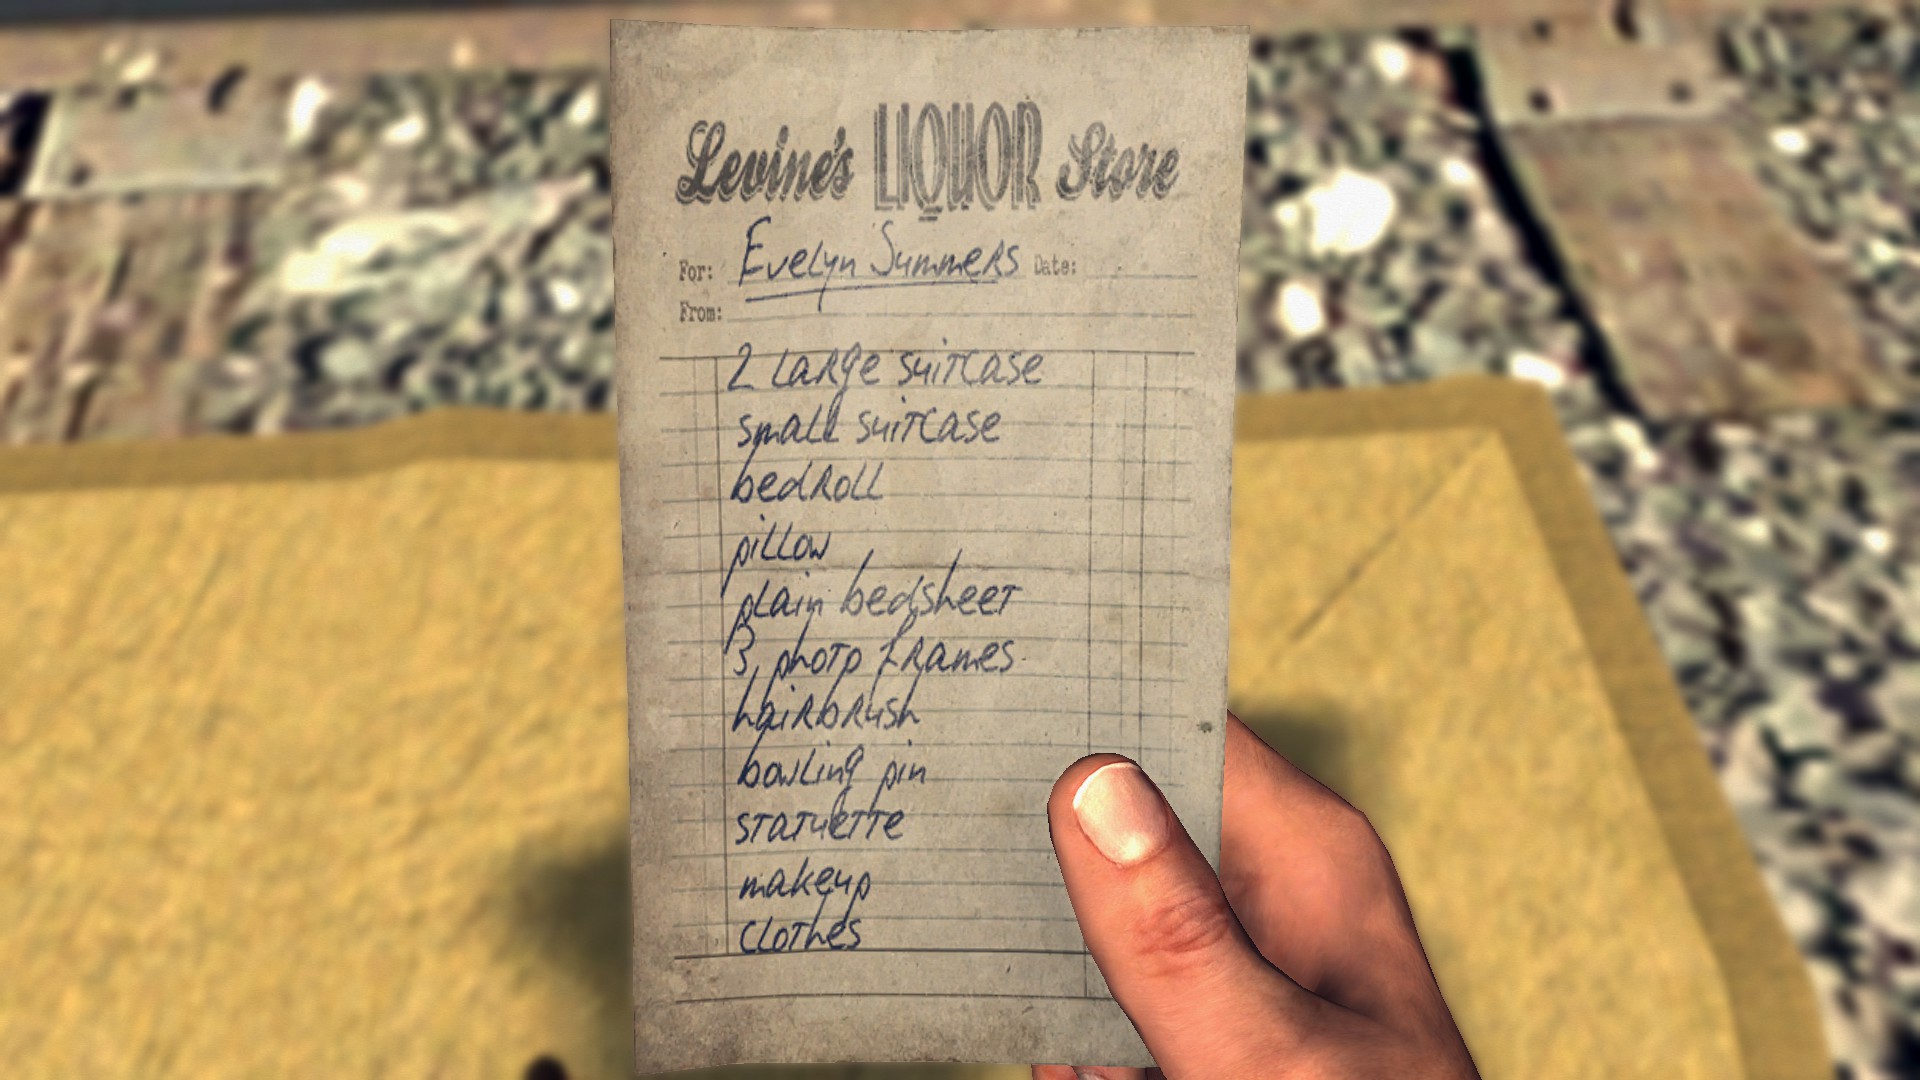 Levine's LIQUOR Store
For: Evelyn Summers Date:
From:
2 large suitcase
small suitcase
bedroll
pillow
plain bedsheet
3 photo frames
hairbrush
bowling pin
statuette
makeup
clothes